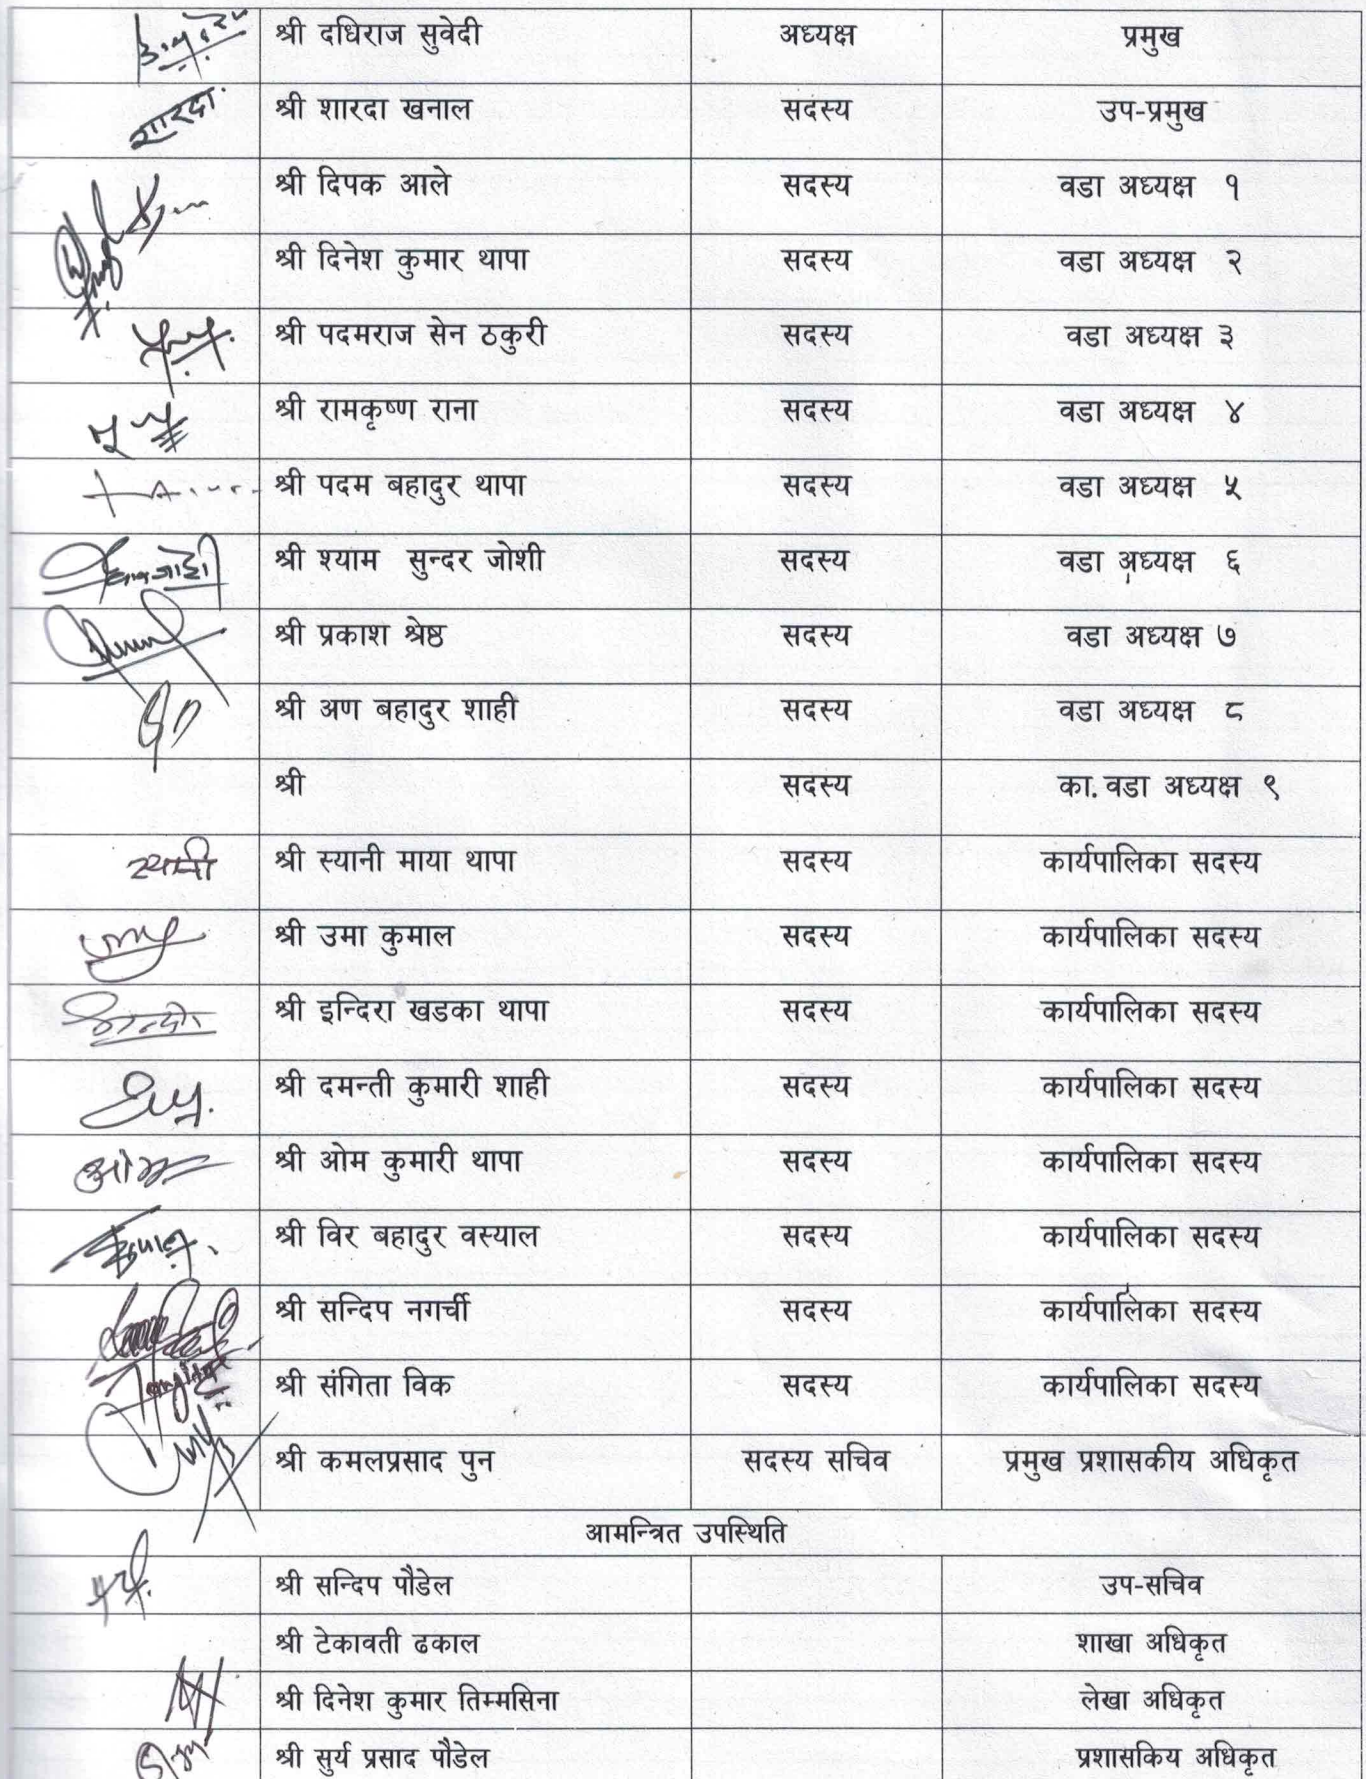 श्री दधिराज सुवेदी अध्यक्ष प्रमुख
शारदा. श्री शारदा खनाल सदस्य उप-प्रमुख
श्री दिपक आले सदस्य वडा अध्यक्ष १
श्री दिनेश कुमार थापा सदस्य वडा अध्यक्ष २
श्री पदमराज सेन ठकुरी सदस्य वडा अध्यक्ष ३
श्री रामकृष्ण राना सदस्य वडा अध्यक्ष ४
श्री पदम बहादुर थापा सदस्य वडा अध्यक्ष ५
श्री श्याम सुन्दर जोशी सदस्य वडा अध्यक्ष ६
श्री प्रकाश श्रेष्ठ सदस्य वडा अध्यक्ष ७
श्री अण बहादुर शाही सदस्य वडा अध्यक्ष ८
श्री सदस्य का. वडा अध्यक्ष ९
स्यानी श्री स्यानी माया थापा सदस्य कार्यपालिका सदस्य
श्री उमा कुमाल सदस्य कार्यपालिका सदस्य
श्री इन्दिरा खडका थापा सदस्य कार्यपालिका सदस्य
श्री दमन्ती कुमारी शाही सदस्य कार्यपालिका सदस्य
ओम श्री ओम कुमारी थापा सदस्य कार्यपालिका सदस्य
श्री विर बहादुर वस्याल सदस्य कार्यपालिका सदस्य
श्री सन्दिप नगर्ची सदस्य कार्यपालिका सदस्य
श्री संगिता विक सदस्य कार्यपालिका सदस्य
श्री कमलप्रसाद पुन सदस्य सचिव प्रमुख प्रशासकीय अधिकृत
आमन्त्रित उपस्थिति
श्री सन्दिप पौडेल उप-सचिव
श्री टेकावती ढकाल शाखा अधिकृत
श्री दिनेश कुमार तिम्मसिना लेखा अधिकृत
श्री सुर्य प्रसाद पौडेल प्रशासकिय अधिकृत